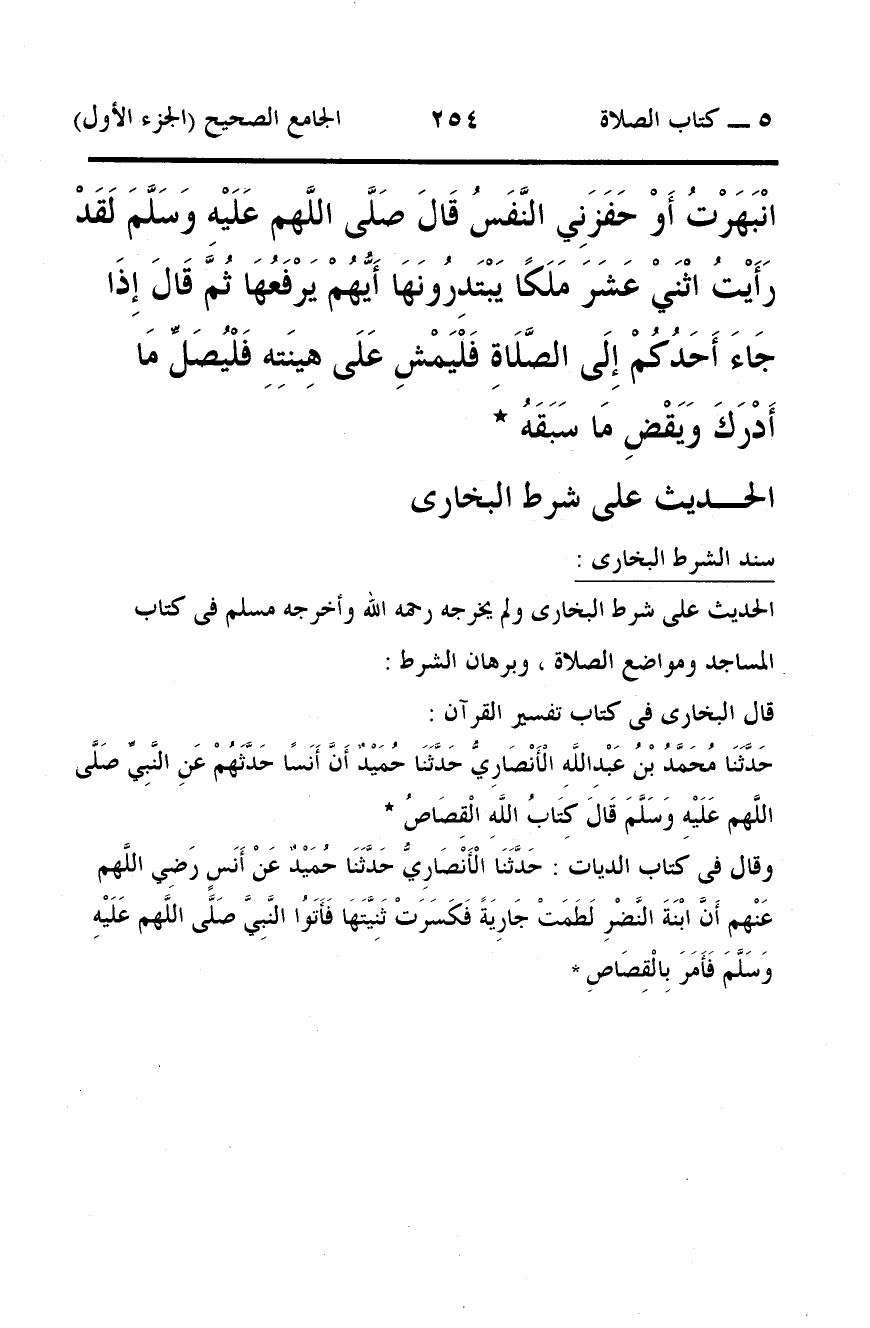 ٥ ــ كتاب الصلاة ٢٥٤ الجامع الصحيح (الجزء الأول)
انْبَهَرْتُ أَوْ حَفَزَنِي النَّفَسُ قَالَ صَلَّى اللهم عَلَيْهِ وَسَلَّمَ لَقَدْ
رَأَيْتُ اثْنَيْ عَشَرَ مَلَكًا يَبْتَدِرُونَهَا أَيُّهُمْ يَرْفَعُهَا ثُمَّ قَالَ إِذَا
جَاءَ أَحَدُكُمْ إِلَى الصَّلَاةِ فَلْيَمْشِ عَلَى هِينَتِهِ فَلْيُصَلِّ مَا
أَدْرَكَ وَيَقْضِ مَا سَبَقَهُ *
الحـــديث على شرط البخارى
سند الشرط البخارى :
الحديث على شرط البخارى ولم يخرجه رحمه الله وأخرجه مسلم فى كتاب
المساجد ومواضع الصلاة ، وبرهان الشرط :
قال البخارى فى كتاب تفسير القرآن :
حَدَّثَنَا مُحَمَّدُ بْنُ عَبْدِاللَّهِ الْأَنْصَارِيُّ حَدَّثَنَا حُمَيْدٌ أَنَّ أَنَسًا حَدَّثَهُمْ عَنِ النَّبِيِّ صَلَّى
اللهم عَلَيْهِ وَسَلَّمَ قَالَ كِتَابُ اللَّهِ الْقِصَاصُ *
وقال فى كتاب الديات : حَدَّثَنَا الْأَنْصَارِيُّ حَدَّثَنَا حُمَيْدٌ عَنْ أَنَسٍ رَضِي اللَّهم
عَنْهم أَنَّ ابْنَةَ النَّضْرِ لَطَمَتْ جَارِيَةً فَكَسَرَتْ ثَنِيَّتَهَا فَأَتَوُا النَّبِيَّ صَلَّى اللهم عَلَيْهِ
وَسَلَّمَ فَأَمَرَ بِالْقِصَاصِ *